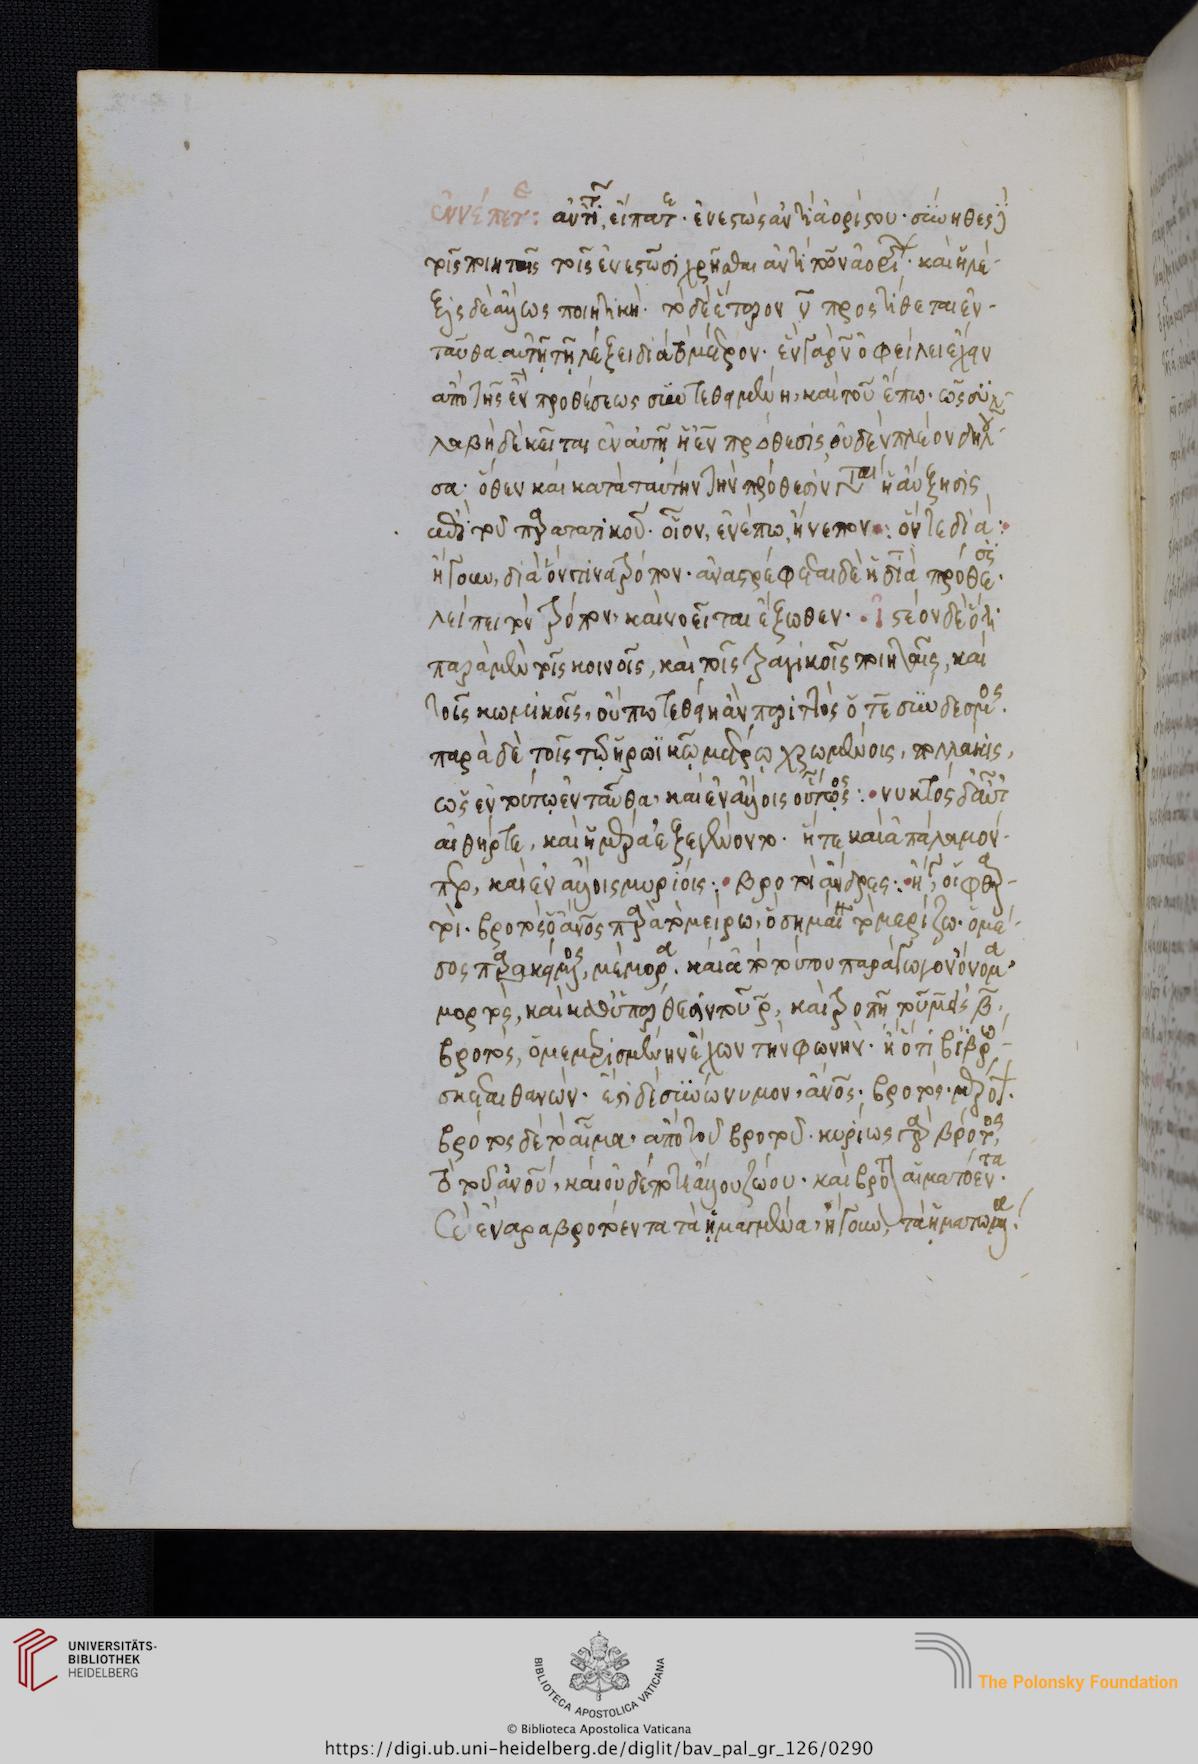 ἐννέπετε: ἀντὶ τοῦ, εἴπατε· ἐνεστὼς ἀντὶ ἀορίστου· σύνηθες γὰρ
τοῖς ποιηταῖς τοῖς ἐνεστῶσι χρῆσθαι ἀντὶ τῶν ἀορίστων· καὶ ἡ λέ-
ξις δὲ ἄλλως ποιητικὴ· τὸ δὲ ἕτερον ν προστίθεται ἐν-
ταῦθα αὐτῇ τῇ λέξει διὰ τὸ μέτρον· ἓν γὰρ ν ὀφείλει ἔχειν
ἀπὸ τῆς ἐν προθέσεως συντεθειμένη, καὶ τοῦ ἔπω· ὡς συλ-
λαβὴ δὲ κεῖται ἐν αὐτῇ ἡ ἐν πρόθεσις, οὐδὲν πλέον δηλοῦ-
σα· ὅθεν καὶ κατὰ ταύτην τὴν πρόθεσιν ἡ αὔξησις
τοῦ παρατατικοῦ· οἷον, ἐνέπω, ἤνεπον: ὅν τε διά:
ἤγουν, διὰ ὅντινα τρόπον· ἀναστρέφεται δὲ ἡ διὰ πρόθεσις·
λείπει τὸν τρόπον, καὶ νοεῖται ἔξωθεν· ἰστέον δὲ ὅτι
παρὰ μὲν τοῖς κοινοῖς, καὶ τοῖς τραγικοῖς ποιηταῖς, καὶ
τοῖς κωμικοῖς, οὔπω τεθείη ἂν περιττὸς ὁ τε σύνδεσμος·
παρὰ δὲ τοῖς τῷ ἡρωϊκῷ μέτρῳ χρωμένοις, πολλάκις,
ὡς ἐν τούτῳ ἐνταῦθα, καὶ ἐν ἄλλοις οὗτος: νυκτὸς δ' αὖτ'
αἰθήρ τε, καὶ ἡμέρα ἐξεγένοντο· ἥ τε καὶ ἀπάλαμόν
περ, καὶ ἐν ἄλλοις μυρίοις: βροτοὶ ἄνδρες: ἤγουν, οἱ φθαρ-
τοί· βροτὸς ὁ ἄνθρωπος παρὰ τὸ μείρω, ὃ σημαίνει τὸ μερίζω· ὁ μέ-
σος παρακείμενος, μέμορα· καὶ ἀπὸ τούτου παράγωγον ὄνομα·
μορτός, καὶ καθ' ὑπέρθεσιν τοῦ ρ, καὶ τροπῇ τοῦ μ εἰς β,
βροτός, ὁ μεμερισμένην ἔχων τὴν φωνὴν· ἢ ὅτι βιβρώ-
σκεται θανών· ἔστι δὲ συνώνυμον, ἄνθρωπος· βροτός· μέροψ·
βρότος δὲ τὸ αἷμα· ἀπὸ τοῦ βροτοῦ· κυρίως γὰρ βρότος,
τὸ τοῦ ἀνθρώπου, καὶ οὐδέποτε ἄλλου ζώου· καὶ βροτόεντα αἱματόεντα·
ἔναρα βροτόεντα τὰ ᾑμαγμένα, ἤγουν, τὰ ᾑματωμένα·
UNIVERSITÄTS-
BIBLIOTHEK
HEIDELBERG
BIBLIOTECA APOSTOLICA VATICANA
The Polonsky Foundation
© Biblioteca Apostolica Vaticana
https://digi.ub.uni-heidelberg.de/diglit/bav_pal_gr_126/0290